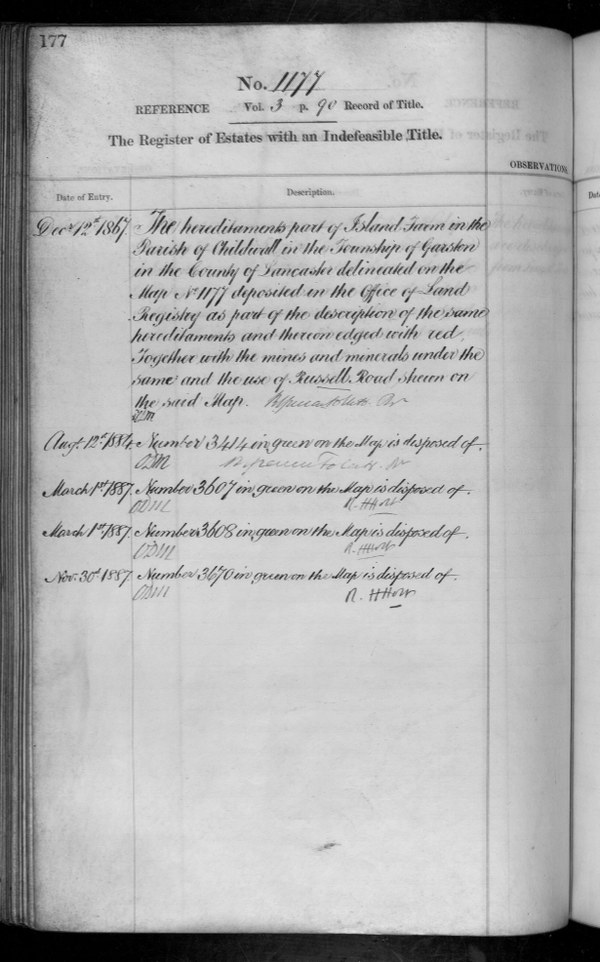 177
No. 1177
REFERENCE Vol. 3 p. 90 Record of Title.
The Register of Estates with an Indefeasible Title.
OBSERVATIONS
Date of Entry. Description.
Decr 12th 1867 The hereditaments part of Island Farm in the
Parish of Childwall in the Township of Garston
in the County of Lancaster delineated on the
Map No 1177 deposited in the Office of Land
Registry as part of the description of the same
hereditaments and thereon edged with red
Together with the mines and minerals under the
same and the use of Russell Road shewn on
the said Map.
ODM
Augt 12th 1884. Number 3414 in green on the Map is disposed of.
ODM
March 1st 1887. Number 3607 in green on the Map is disposed of.
ODM R. H Holt
March 1st 1887. Number 3608 in green on the Map is disposed of.
ODM R. H Holt
Nov. 30th 1887. Number 3670 in green on the Map is disposed of.
ODM R. H Holt